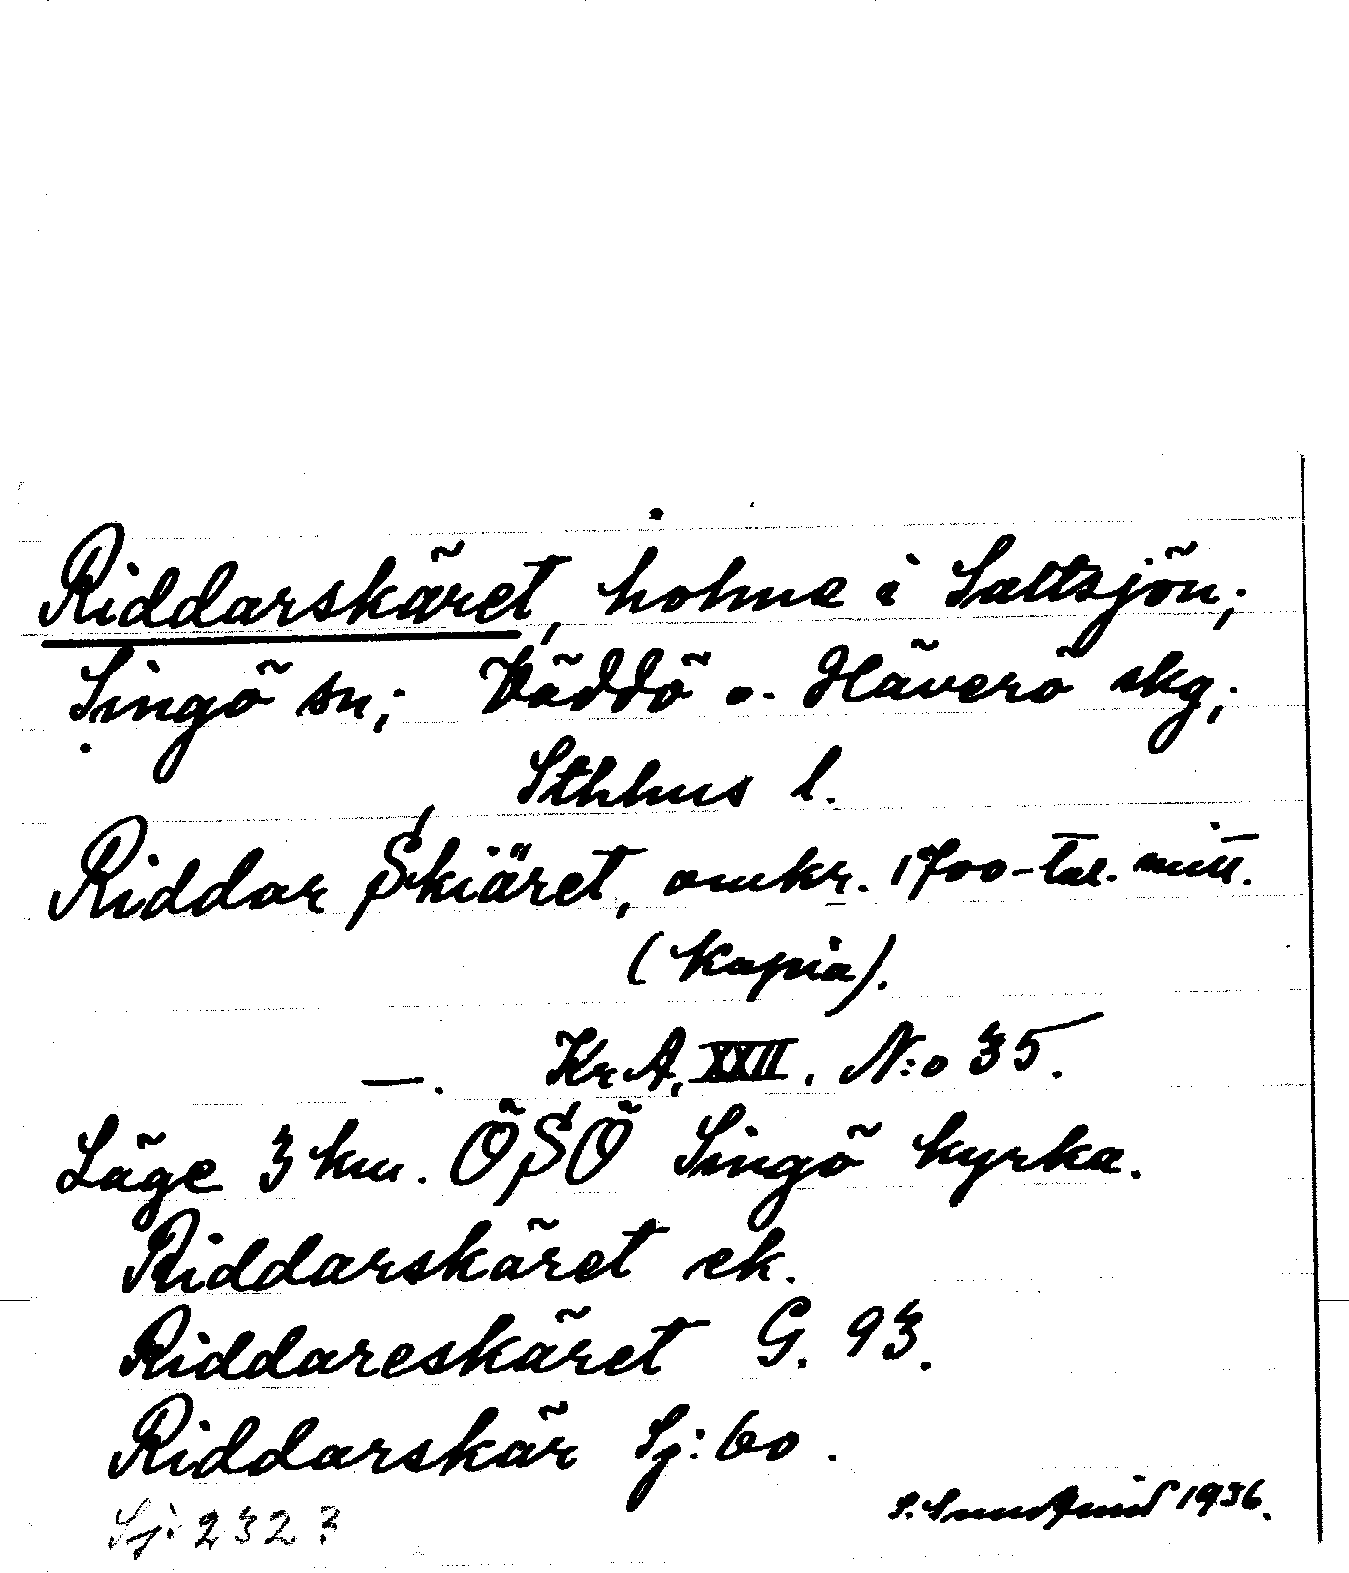 Riddarskäret, holme i Saltsjön;
Singö sn; Väddö o. Häverö skg;
Sthlms l.
Riddar Skiäret, omkr. 1700-tal. mitt.
(kopia).
—. Kr.A. XXII. N:o 35.
Läge 3 km. ÖSÖ Singö kyrka.
Riddarskäret ek.
Riddareskäret G. 93.
Riddarskär Sj: 60.
Sj: 232 ?
S. Sundqvist 1936.